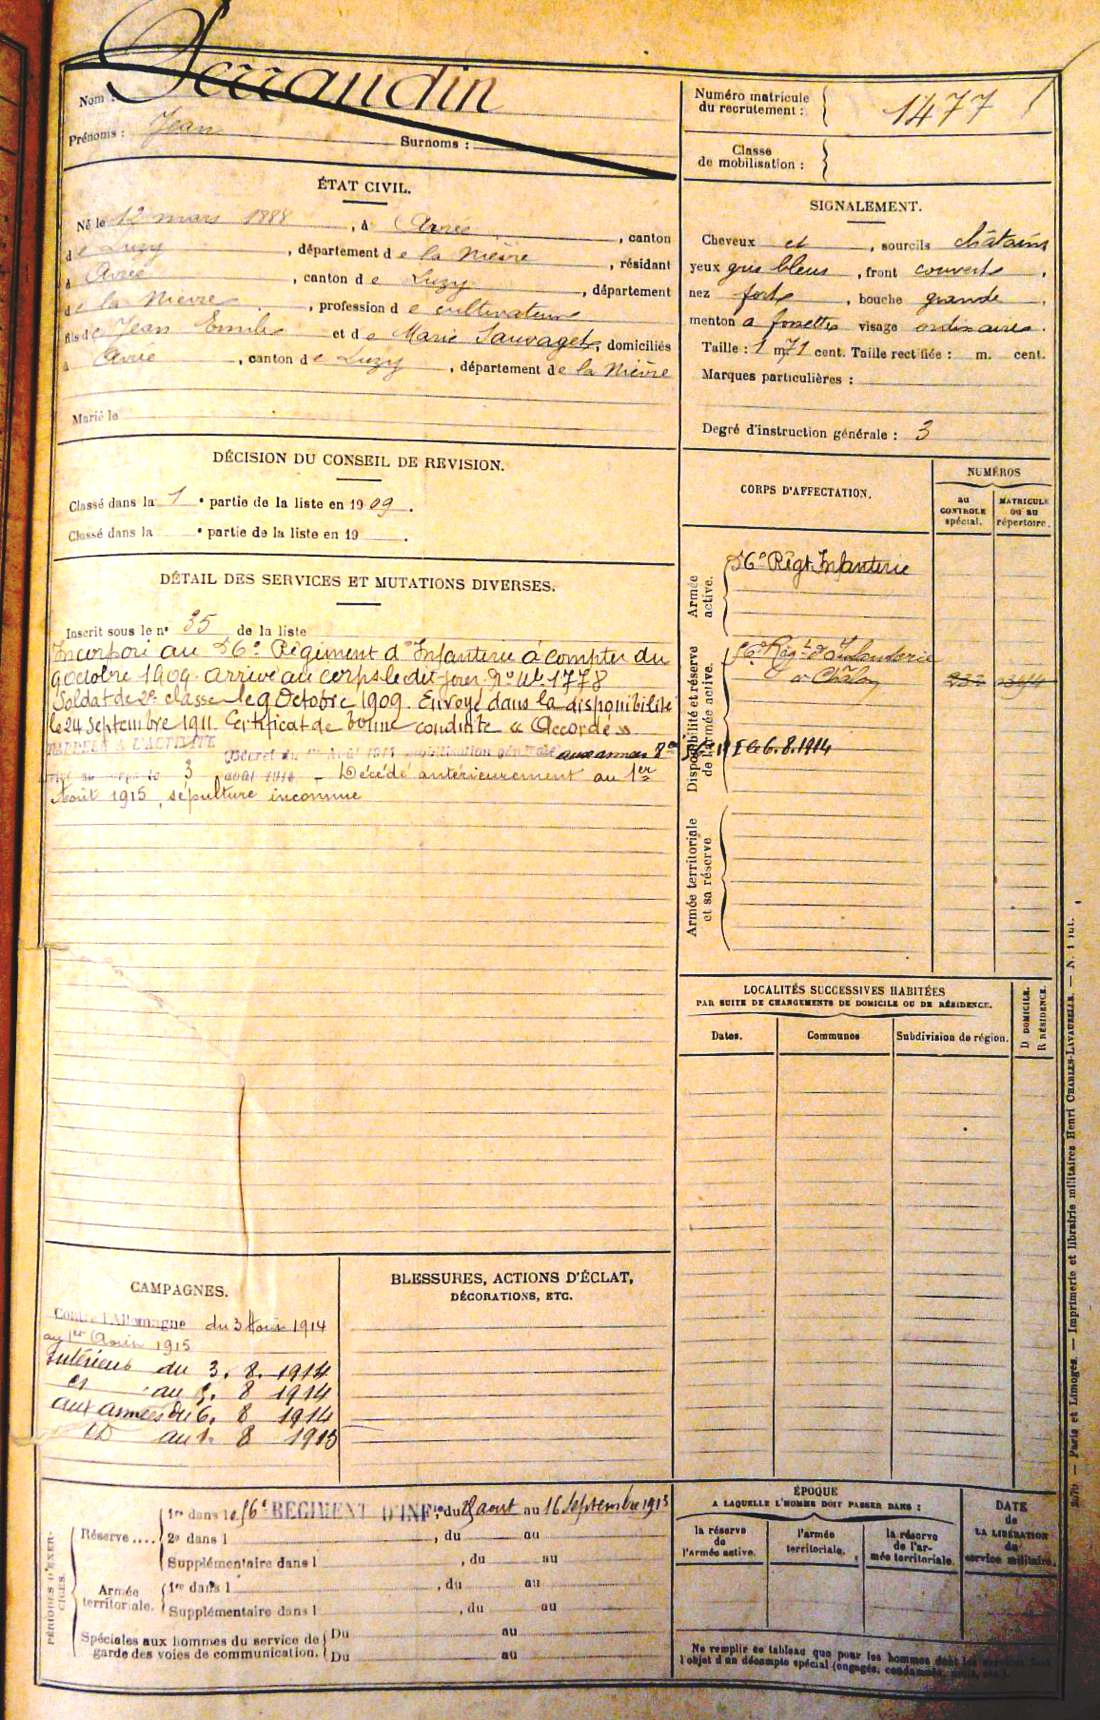 Nom : Perraudin
Prénoms : Jean Surnoms :
Numéro matricule
du recrutement : 1477
Classe
de mobilisation :
ÉTAT CIVIL.
Né le 12 mars 1888, à Avrée, canton
de Luzy, département de la Nièvre, résidant
à Avrée, canton de Luzy, département
de la Nièvre, profession de cultivateur
fils de Jean Emile et de Marie Sauvaget, domiciliés
à Avrée, canton de Luzy, département de la Nièvre
Marié le
SIGNALEMENT.
Cheveux et, sourcils châtains
yeux gris bleus, front couvert,
nez fort, bouche grande,
menton à fossettes visage ordinaire.
Taille : 1 m. 71 cent. Taille rectifiée : m. cent.
Marques particulières :
Degré d'instruction générale : 3
DÉCISION DU CONSEIL DE REVISION.
Classé dans la 1e partie de la liste en 1909.
Classé dans la e partie de la liste en 19 .
DÉTAIL DES SERVICES ET MUTATIONS DIVERSES.
Inscrit sous le n° 35 de la liste
Incorporé au 56e Régiment d'Infanterie à compter du
9 octobre 1909. arrivé au corps le dit jour. No Mle 1778
Soldat de 2e classe le 9 Octobre 1909. Envoyé dans la disponibilité
le 24 Septembre 1911. Certificat de bonne conduite « Accordé »
RAPPELÉ A L'ACTIVITÉ Décret du 1er Août 1914 mobilisation générale aux armées 56e RI le 6.8.1914
3 août 1914 – Décédé antérieurement au 1er
Août 1915, sépulture inconnue
CORPS D'AFFECTATION.
NUMÉROS
au
CONTROLE
spécial.
MATRICULE
ou au
répertoire.
Armée
active.
56e Régt Infanterie
Disponibilité et réserve
de l'armée active.
56e Régt d'Infanterie
à Châlon
Armée territoriale
et sa réserve
LOCALITÉS SUCCESSIVES HABITÉES
PAR SUITE DE CHANGEMENTS DE DOMICILE OU DE RÉSIDENCE.
Dates.
Communes
Subdivision de région.
D DOMICILE.
R RÉSIDENCE.
CAMPAGNES.
Contre l'Allemagne du 3 Août 1914
au 1er Août 1915
Intérieur du 3. 8. 1914
au 5. 8 1914
aux armées du 6. 8 1914
au 1. 8 1915
BLESSURES, ACTIONS D'ÉCLAT,
DÉCORATIONS, ETC.
PÉRIODES D'EXERCICES.
Réserve ....
1re dans le 56e REGIMENT D'INFie, du 25 aout au 16 Septembre 1913
2e dans l , du au
Supplémentaire dans l , du au
Armée
territoriale.
1re dans l , du au
Supplémentaire dans l , du au
Spéciales aux hommes du service de
garde des voies de communication.
Du au
Du au
ÉPOQUE
A LAQUELLE L'HOMME DOIT PASSER DANS :
la réserve
de
l'armée active.
l'armée
territoriale.
la réserve
de l'ar-
mée territoriale.
DATE
de
LA LIBÉRATION
du
service militaire.
Ne remplir ce tableau que pour les hommes dont les services font
l'objet d'un décompte spécial (engagés, condamnés, omis, etc.).
Paris et Limoges. — Imprimerie et librairie militaires Henri CHARLES-LAVAUZELLE. —